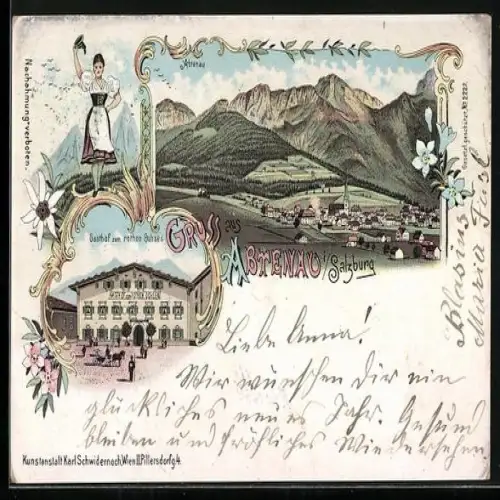 Nachahmung verboten.
Abtenau
Gesetzl. geschützt. No 2222.
Gasthof zum rothen Ochsen
GASTHOF ZUM ROTHEN OCHSEN
GRUSS aus
ABTENAU i/Salzburg
Liebe Anna!
Wir wünschen Dir ein
glückliches neues Jahr. Gesund
bleiben und fröhliches Wiedersehen.
Blasius
Maria
Kunstanstalt Karl Schwidernoch, Wien II. Pillersdorfg. 4.